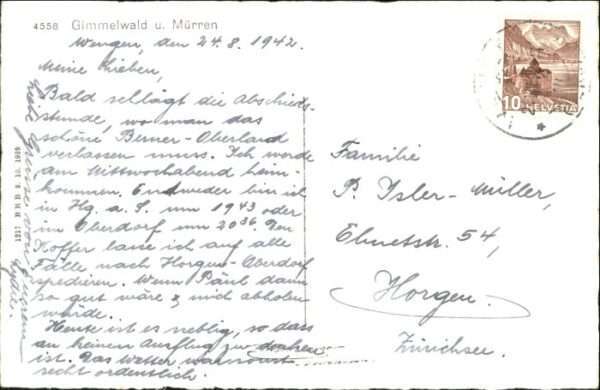 4558 Gimmelwald u. Mürren
Wengen, den 24.8.1942.
Meine Lieben,
Bald schlägt die Abschieds-
stunde, wo man das
schöne Berner-Oberland
verlassen muss. Ich werde
am Mittwochabend heim-
kommen. Entweder bin ich
in Hg. a. S. um 1943 oder
im Oberdorf um 2036. Den
Koffer lasse ich auf alle
Fälle nach Horgen-Oberdorf
spedieren. Wenn Päul dann
so gut wäre & mich abholen
würde.
Heute ist es neblig, so dass
an keinen Ausflug zu denken
ist. Das Wetter war sonst
recht ordentlich.
Viele Grüsse von Eurem
Lydie.
10 HELVETIA
Familie
P. Isler-Müller,
Ebnetstr. 54,
Horgen.
Zürichsee.